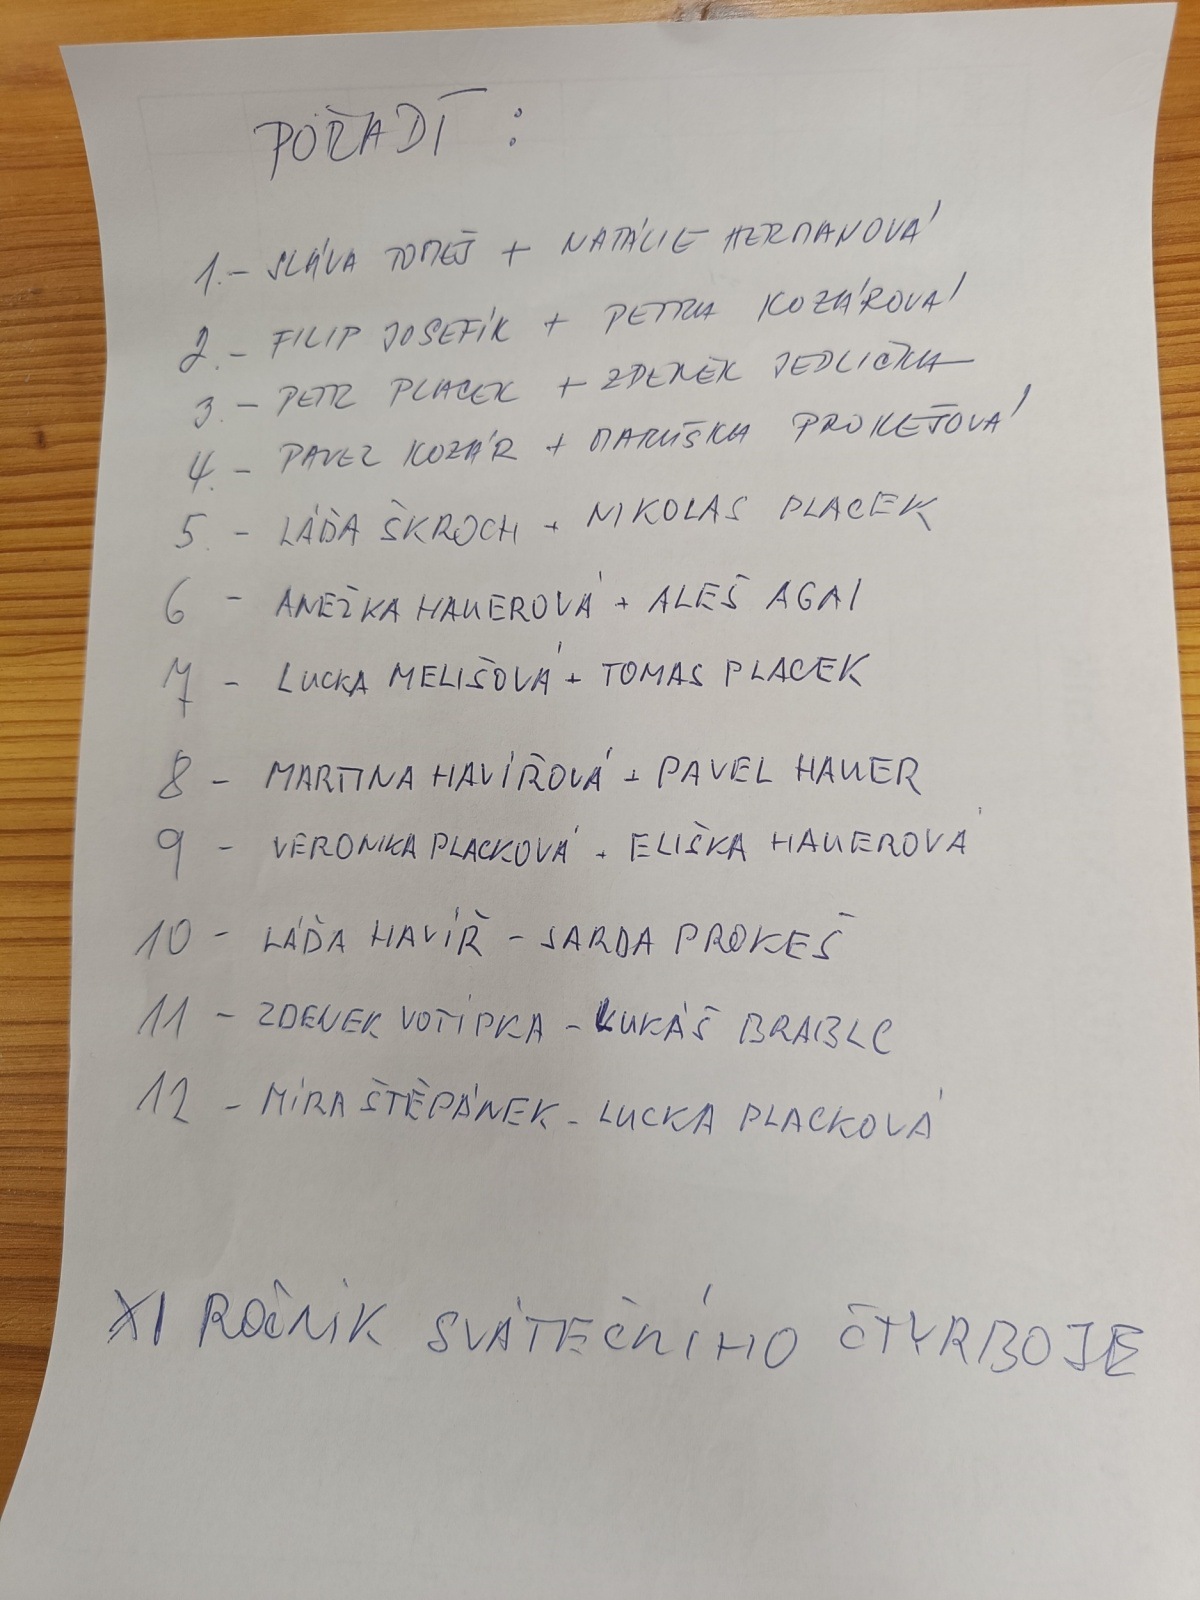 POŘADÍ :
1. - SLÁVA TOMEŠ + NATÁLIE HERMANOVÁ
2. - FILIP JOSEFÍK + PETRA KOZÁROVÁ
3. - PETR PLACEK + ZDENĚK JEDLIČKA
4. - PAVEL KOZÁR + MARUŠKA PROKEŠOVÁ
5. - LÁĎA ŠKROCH + NIKOLAS PLACEK
6 - ANEŽKA HAUEROVÁ + ALEŠ AGAI
7 - LUCKA MELIŠOVÁ + TOMAS PLACEK
8 - MARTINA HAVÍŘOVÁ + PAVEL HAUER
9 - VERONIKA PLACKOVÁ + ELIŠKA HAUEROVÁ
10 - LÁĎA HAVÍŘ - JARDA PROKEŠ
11 - ZDENEK VOTÍPKA - LUKÁŠ BRABLC
12 - MÍRA ŠTĚPÁNEK - LUCKA PLACKOVÁ
XI ROČNÍK SVÁTEČNÍHO ČTYRBOJE